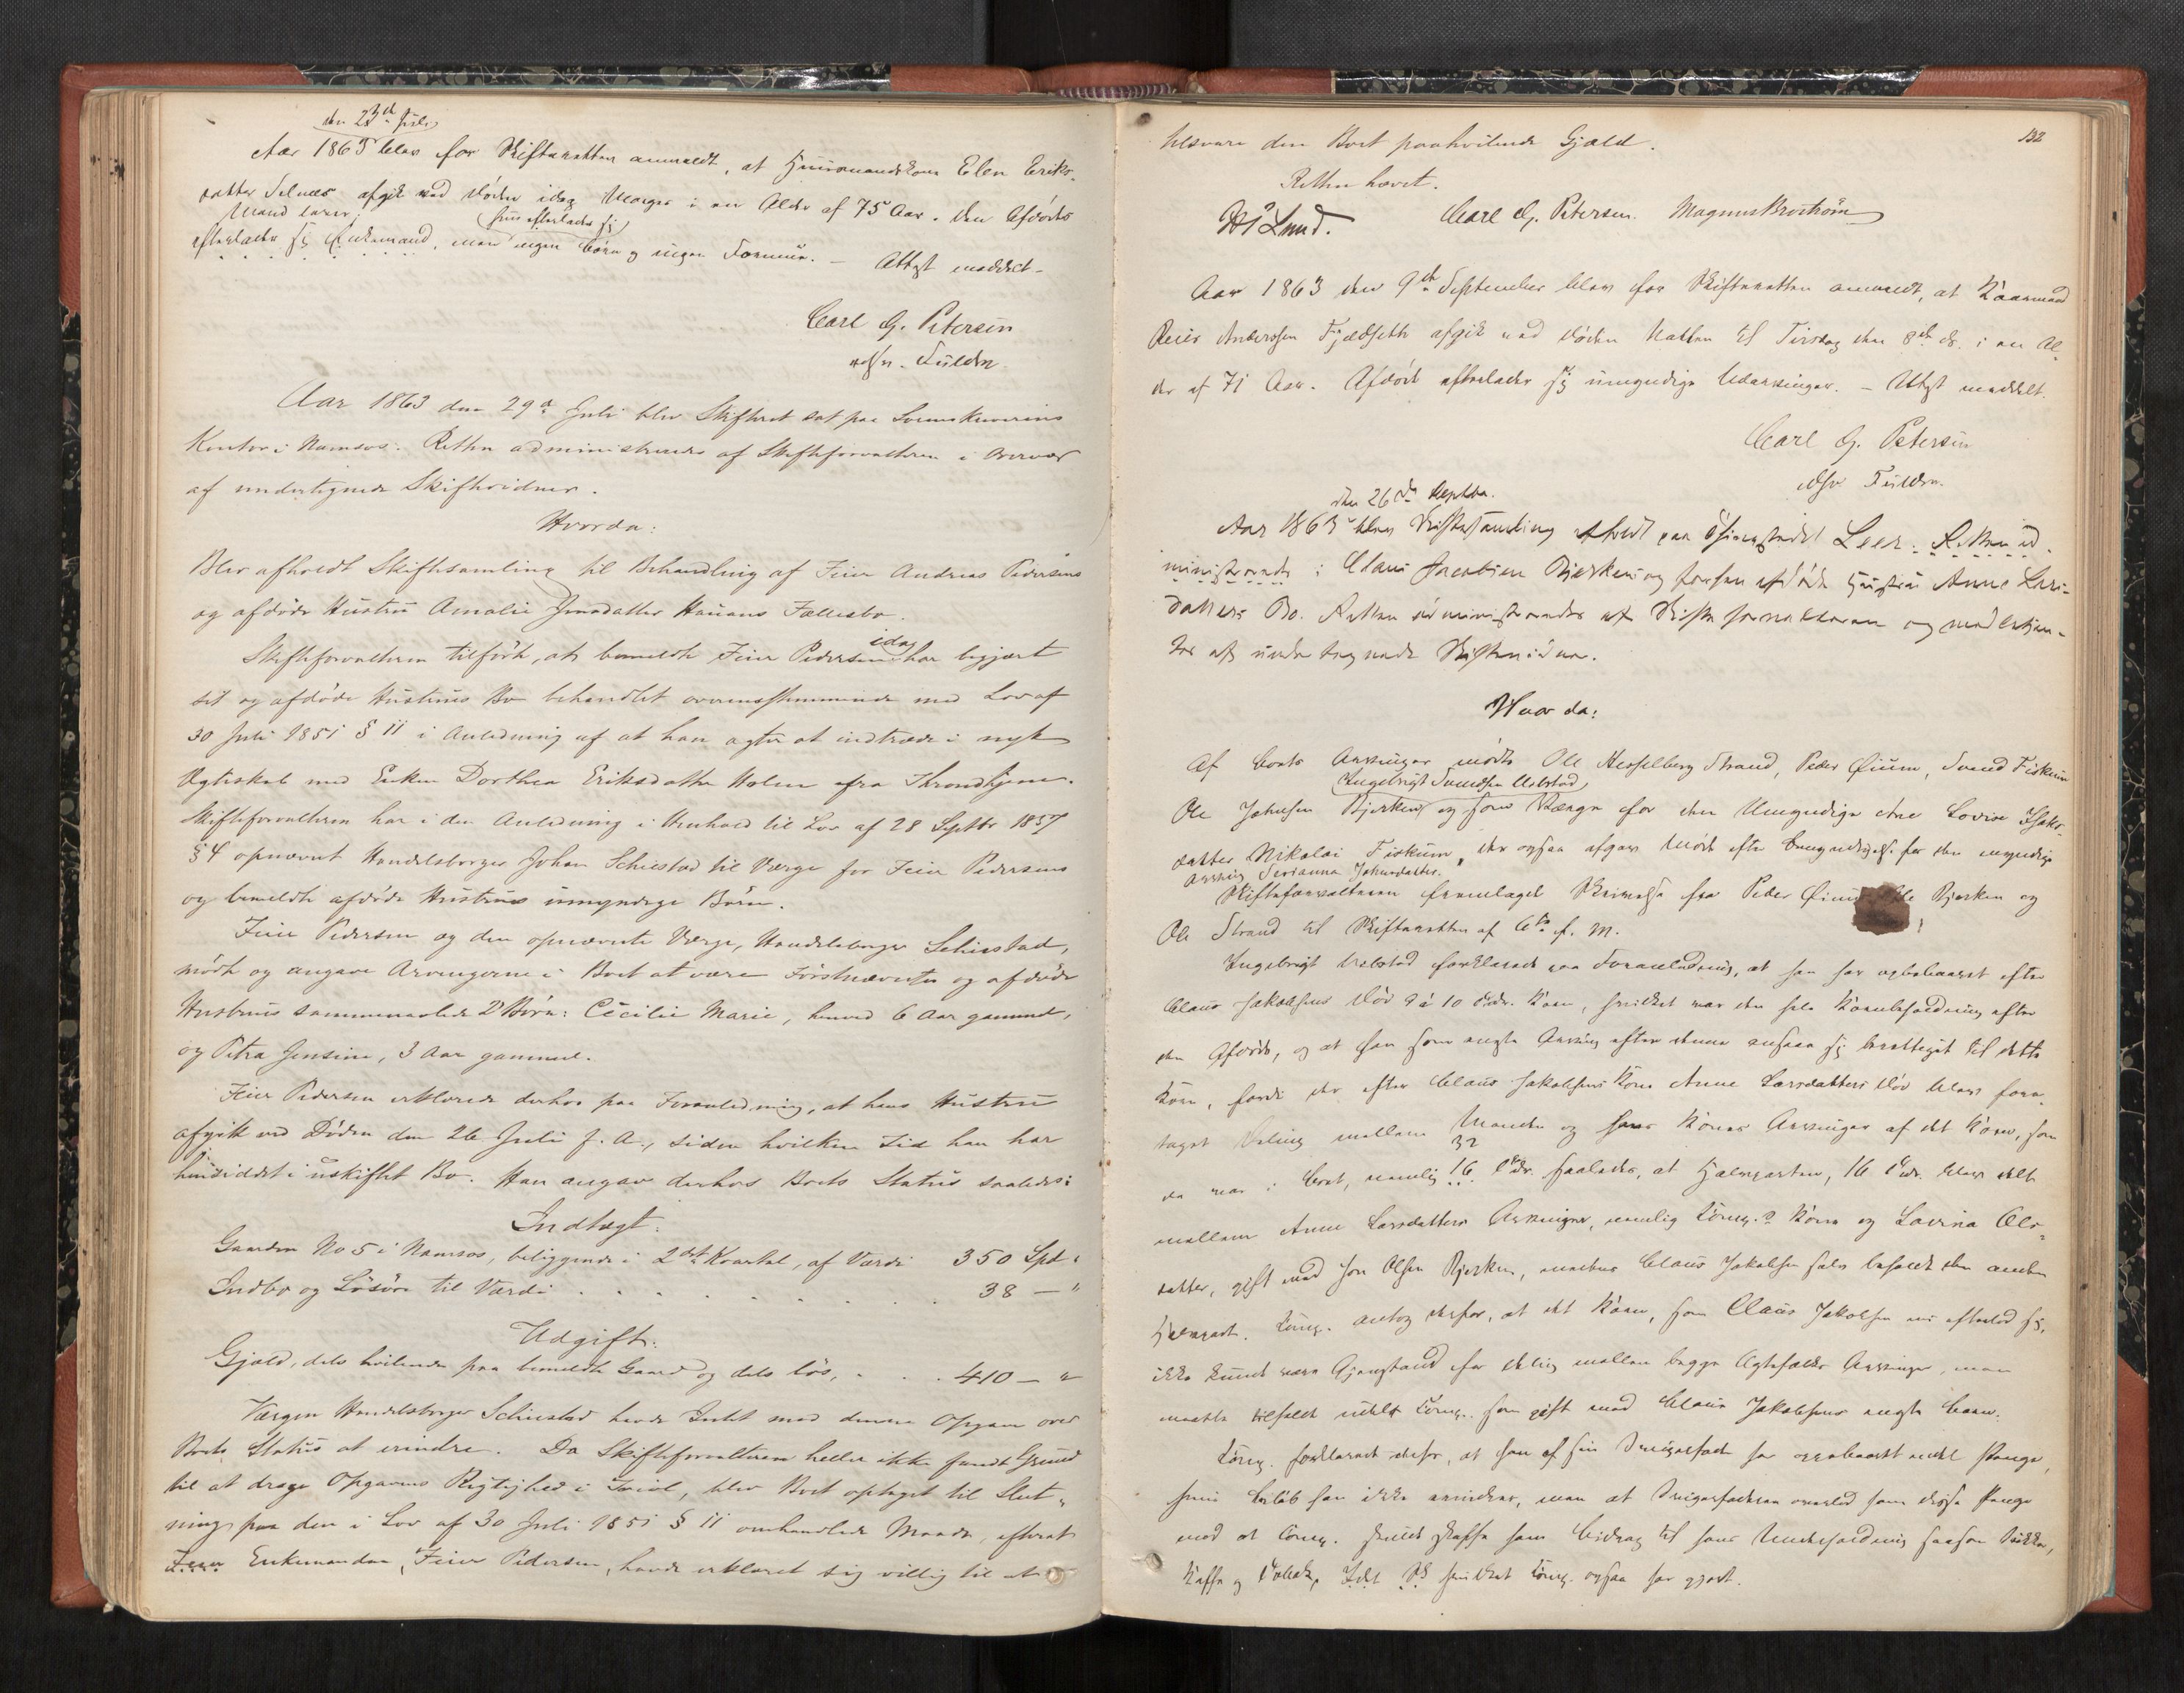 den 23de Juli
Aar 1863 blev for Skifteretten anmeldt, at Huusmandskone Elen Eriks-
datter Selnes afgik ved Døden idag Morges i en Alder af 75 Aar. Den Afdøde
Mand lever; hun efterlader sig
efterlader sig Enkemand, men ingen Børn og ingen Formue. – Attest meddelt –
Carl G. Petersen
Aar 1863 den 29de Juli blev Skifteret sat paa Sorenskriverens
Kontor i Namsos. Retten administreredes af Skifteforvalteren i Overvær
af undertegnede Skiftevidner.
Hvorda:
Blev afholdt Skiftesamling til Behandling af Feier Andreas Pedersens
og afdøde Hustru Amalie Jensdatter Hauans Fællesbo.
idag
Skifteforvalteren tilførte, at bemeldte Feier Pedersen har begjært
sit og afdøde Hustrues Bo behandlet overensstemmende med Lov af
30 Juli 1851 § 11 i Anledning af at han agter at indtræde i nyt
Ægteskab med Enken Dorthea Eriksdatter Holm fra Throndhjem.
Skifteforvalteren har i den Anledning i Henhold til Lov af 28 Septbr 1857
§ 4 opnævnt Handelsborger Johan Schiestad til Værge for Feier Pedersens
og bemeldte afdøde Hustrues umyndige Børn.
Feier Pedersen og den opnævnte Værge, Handelsborger Schiestad,
mødte og angave Arvingerne i Boet at være Førstnævnte og afdøde
Hustrues sammenavlede 2 Børn: Cecilie Marie, henved 6 Aar gammel,
og Petra Jensine, 3 Aar gammel.
Feier Pedersen erklærede derhos paa Foranledning, at hans Hustru
afgik ved Døden den 26 Juli f. A., siden hvilken Tid han har
hensiddet i uskiftet Bo. Han angav derhos Boets Status saaledes:
Indtægt:
Gaarden No 5 i Namsos, beliggende i 2det Kvartal, af Værdi 350 Spd "
Indbo og Løsøre til Værdi . . . . . . . . 38 — "
Udgift:
Gjæld, dels hvilende paa bemeldte Gaard og dels løs, . . . 410 — "
Værgen Handelsborger Schiestad havde Intet mod denne Opgave over
Boets Status at erindre. Da Skifteforvalteren heller ikke fandt Grund
til at drage Opgavens Rigtighed i Tvivl, blev Boet optaget til Slut-
ning paa den i Lov af 30 Juli 1851 § 11 omhandlede Maade, efterat
Enkemanden, Feier Pedersen, havde erklæret sig villig til at
132
tilsvare den Boet paahvilende Gjæld.
Retten hævet.
Lund. Carl G. Petersen Magnus Broström
Aar 1863 den 9de September blev for Skifteretten anmeldt, at Kaarmand
Reier Anderssen Fjeldseth afgik ved Døden Natten til Tirsdag den 8de ds. i en Al-
der af 71 Aar. Afdøde efterlader sig umyndige Udarvinger. – Attest meddelt.
Carl G. Petersen
den 26de Septbr.
Aar 1863 blev Skiftesamling afholdt paa Thingstedet Leer. Retten ad-
ministreredes i Claus Jacobsen Bjerken og forhen afdøde Hustru Anne Lars-
datters Bo. Retten administreredes af Skifteforvalteren og medbetjen-
tes af undertegnede Skiftevidner.
Hvorda:
Af Boets Arvinger mødte Ole Hesselberg Strand, Peder Øium, Svend Fiskum
Ingebrigt Svendsen Uvbstad
Ole Johnsen Bjerken og som Værge for den Umyndige Ane Lovise Isaks-
datter Nikolai Fiskum, der ogsaa afgav Møde efter Bemyndigelse for den myndige
Arving Serianna Johnsdatter.
Skifteforvalteren fremlagde Skrivelse fra Peder Øium, Ole Bjerken og
Ole Strand til Skifteretten af 6te f. M.
Ingebrigt forklarede paa Foranledning, at han har oppebaaret efter
Claus Jakobsens Død 9 à 10 Korn, hvilket var den hele Kornbeholdning efter
den Afdøde, og at han som nogte Arving efter denne ansaa sig berettiget til dette
Korn, fordi der efter Claus Jakobsens Kone Anne Larsdatters Død blev fore-
taget Deling mellem Manden og hans Kones Arvinger af det Korn, som
32
da var i Boet, nemlig 16 saaledes, at Halvparten, 16 blev delt
mellem Anne Larsdatters Arvinger, nemlig Comp. Kone og Lovina Ols-
datter, gift med Jon Olsen Bjerken, medens Claus Jakobsen selv beholdt den anden
Halvpart. Comp. antog derfor, at det Korn, som Claus Jakobsen nu efterlod sig,
ikke kunde være Gjenstand for Deling mellem begge Ægtefolks Arvinger, men
maatte tilfalde Comp. som gift med Claus Jakobsens Barn.
Comp. forklarede derhos, at han af sin Svigerfader har oppebaaret endel Penge,
hvis Beløb han ikke erindrer, men at Svigerfaderen overlod ham disse Penge
mod at Comp. skulde skaffe ham Bidrag til hans Underholdning saasom Sukker,
Kaffe og Tobak, hvilket Comp. ogsaa har gjort.